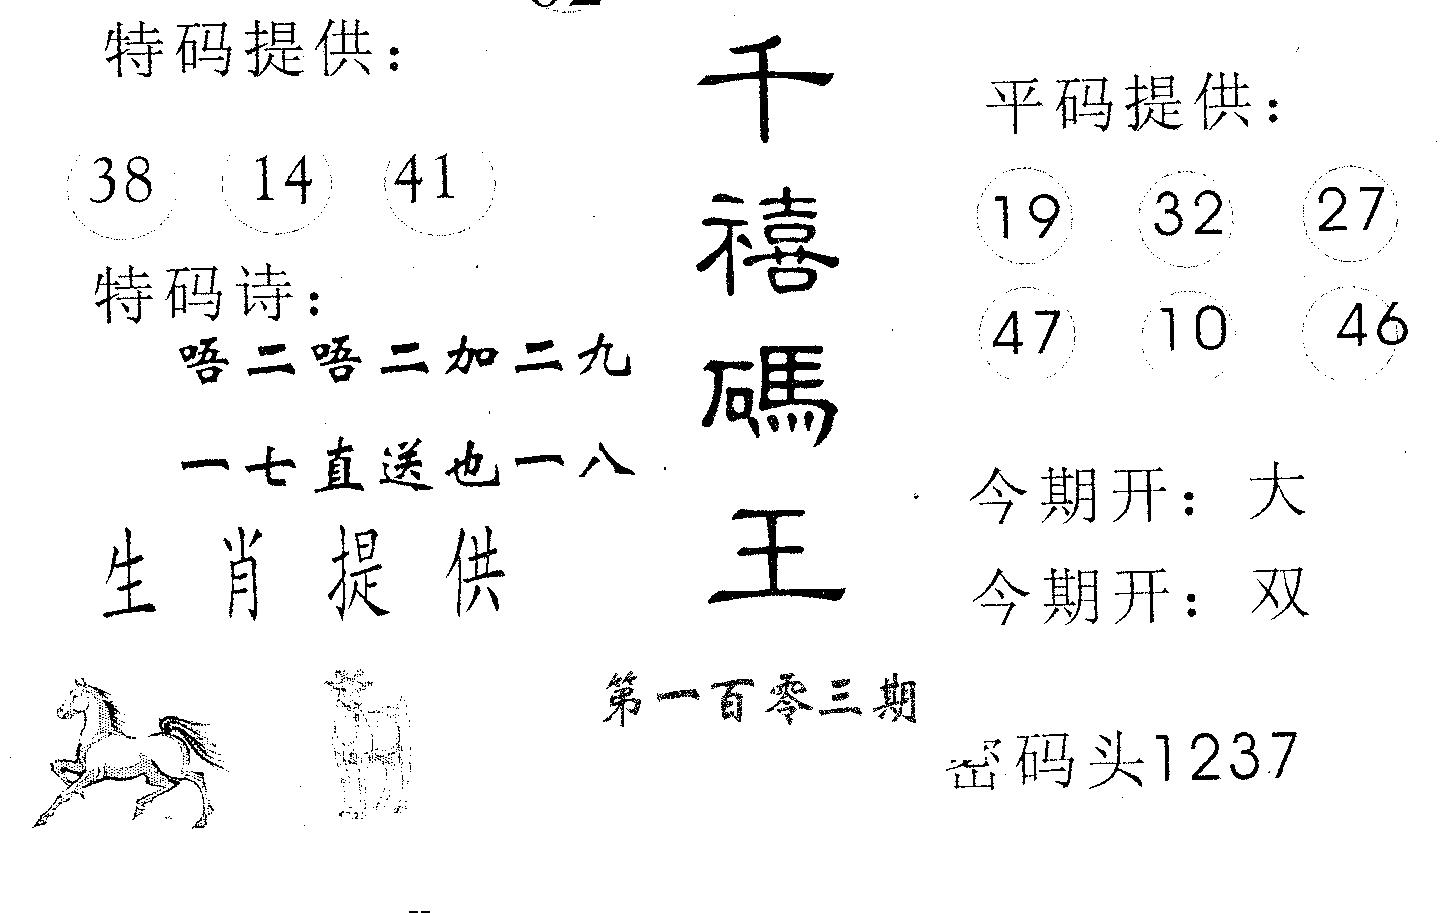 特码提供：
38 14 41
特码诗：
唔二唔二加二九
一七直送也一八
生肖提供
千禧碼王
第一百零三期
平码提供：
19 32 27
47 10 46
今期开：大
今期开：双
密码头1237